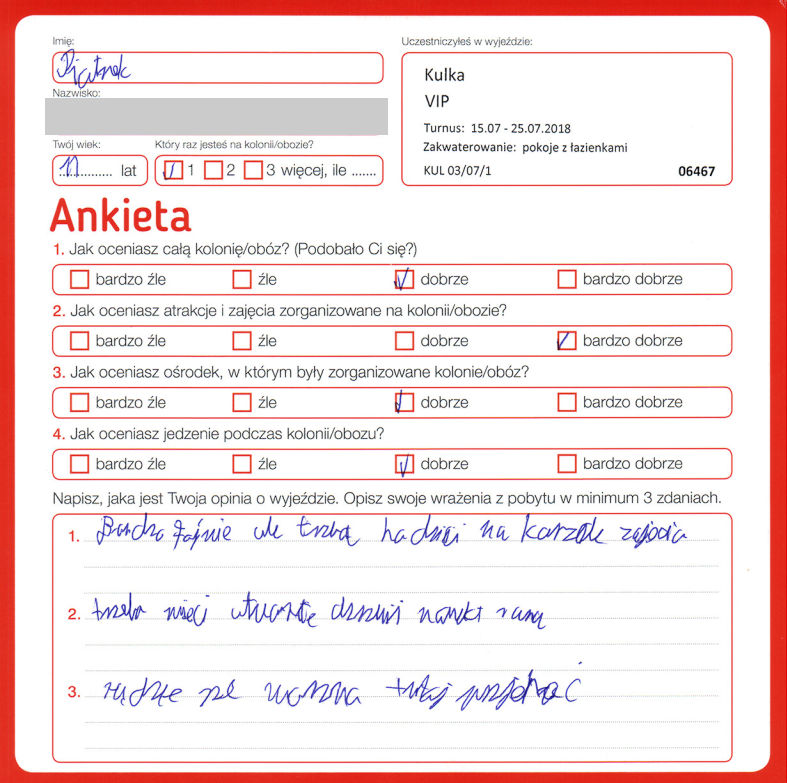 Imię:
Uczestniczyłeś w wyjeździe:
Piątrek
Kulka
Nazwisko:
VIP
Turnus: 15.07 - 25.07.2018
Twój wiek:
Który raz jesteś na kolonii/obozie?
Zakwaterowanie: pokoje z łazienkami
11 lat
1 2 3 więcej, ile .......
KUL 03/07/1 06467
Ankieta
1. Jak oceniasz całą kolonię/obóz? (Podobało Ci się?)
bardzo źle źle dobrze bardzo dobrze
2. Jak oceniasz atrakcje i zajęcia zorganizowane na kolonii/obozie?
bardzo źle źle dobrze bardzo dobrze
3. Jak oceniasz ośrodek, w którym były zorganizowane kolonie/obóz?
bardzo źle źle dobrze bardzo dobrze
4. Jak oceniasz jedzenie podczas kolonii/obozu?
bardzo źle źle dobrze bardzo dobrze
Napisz, jaka jest Twoja opinia o wyjeździe. Opisz swoje wrażenia z pobytu w minimum 3 zdaniach.
1. fajnie ale na
2. trzeba
3. tutaj